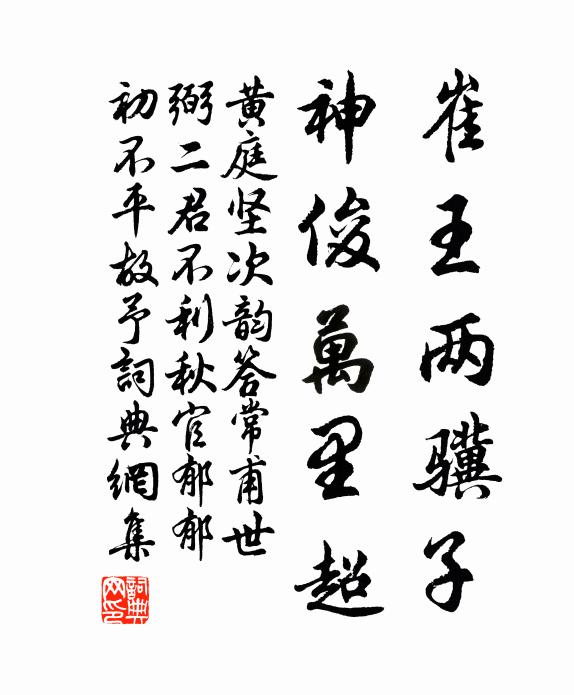 崔王两骥子
神俊萬里超
黄庭坚次韵答常甫世
弼二君不利秋官郁郁
初不平故予詞典網集
詞典網印